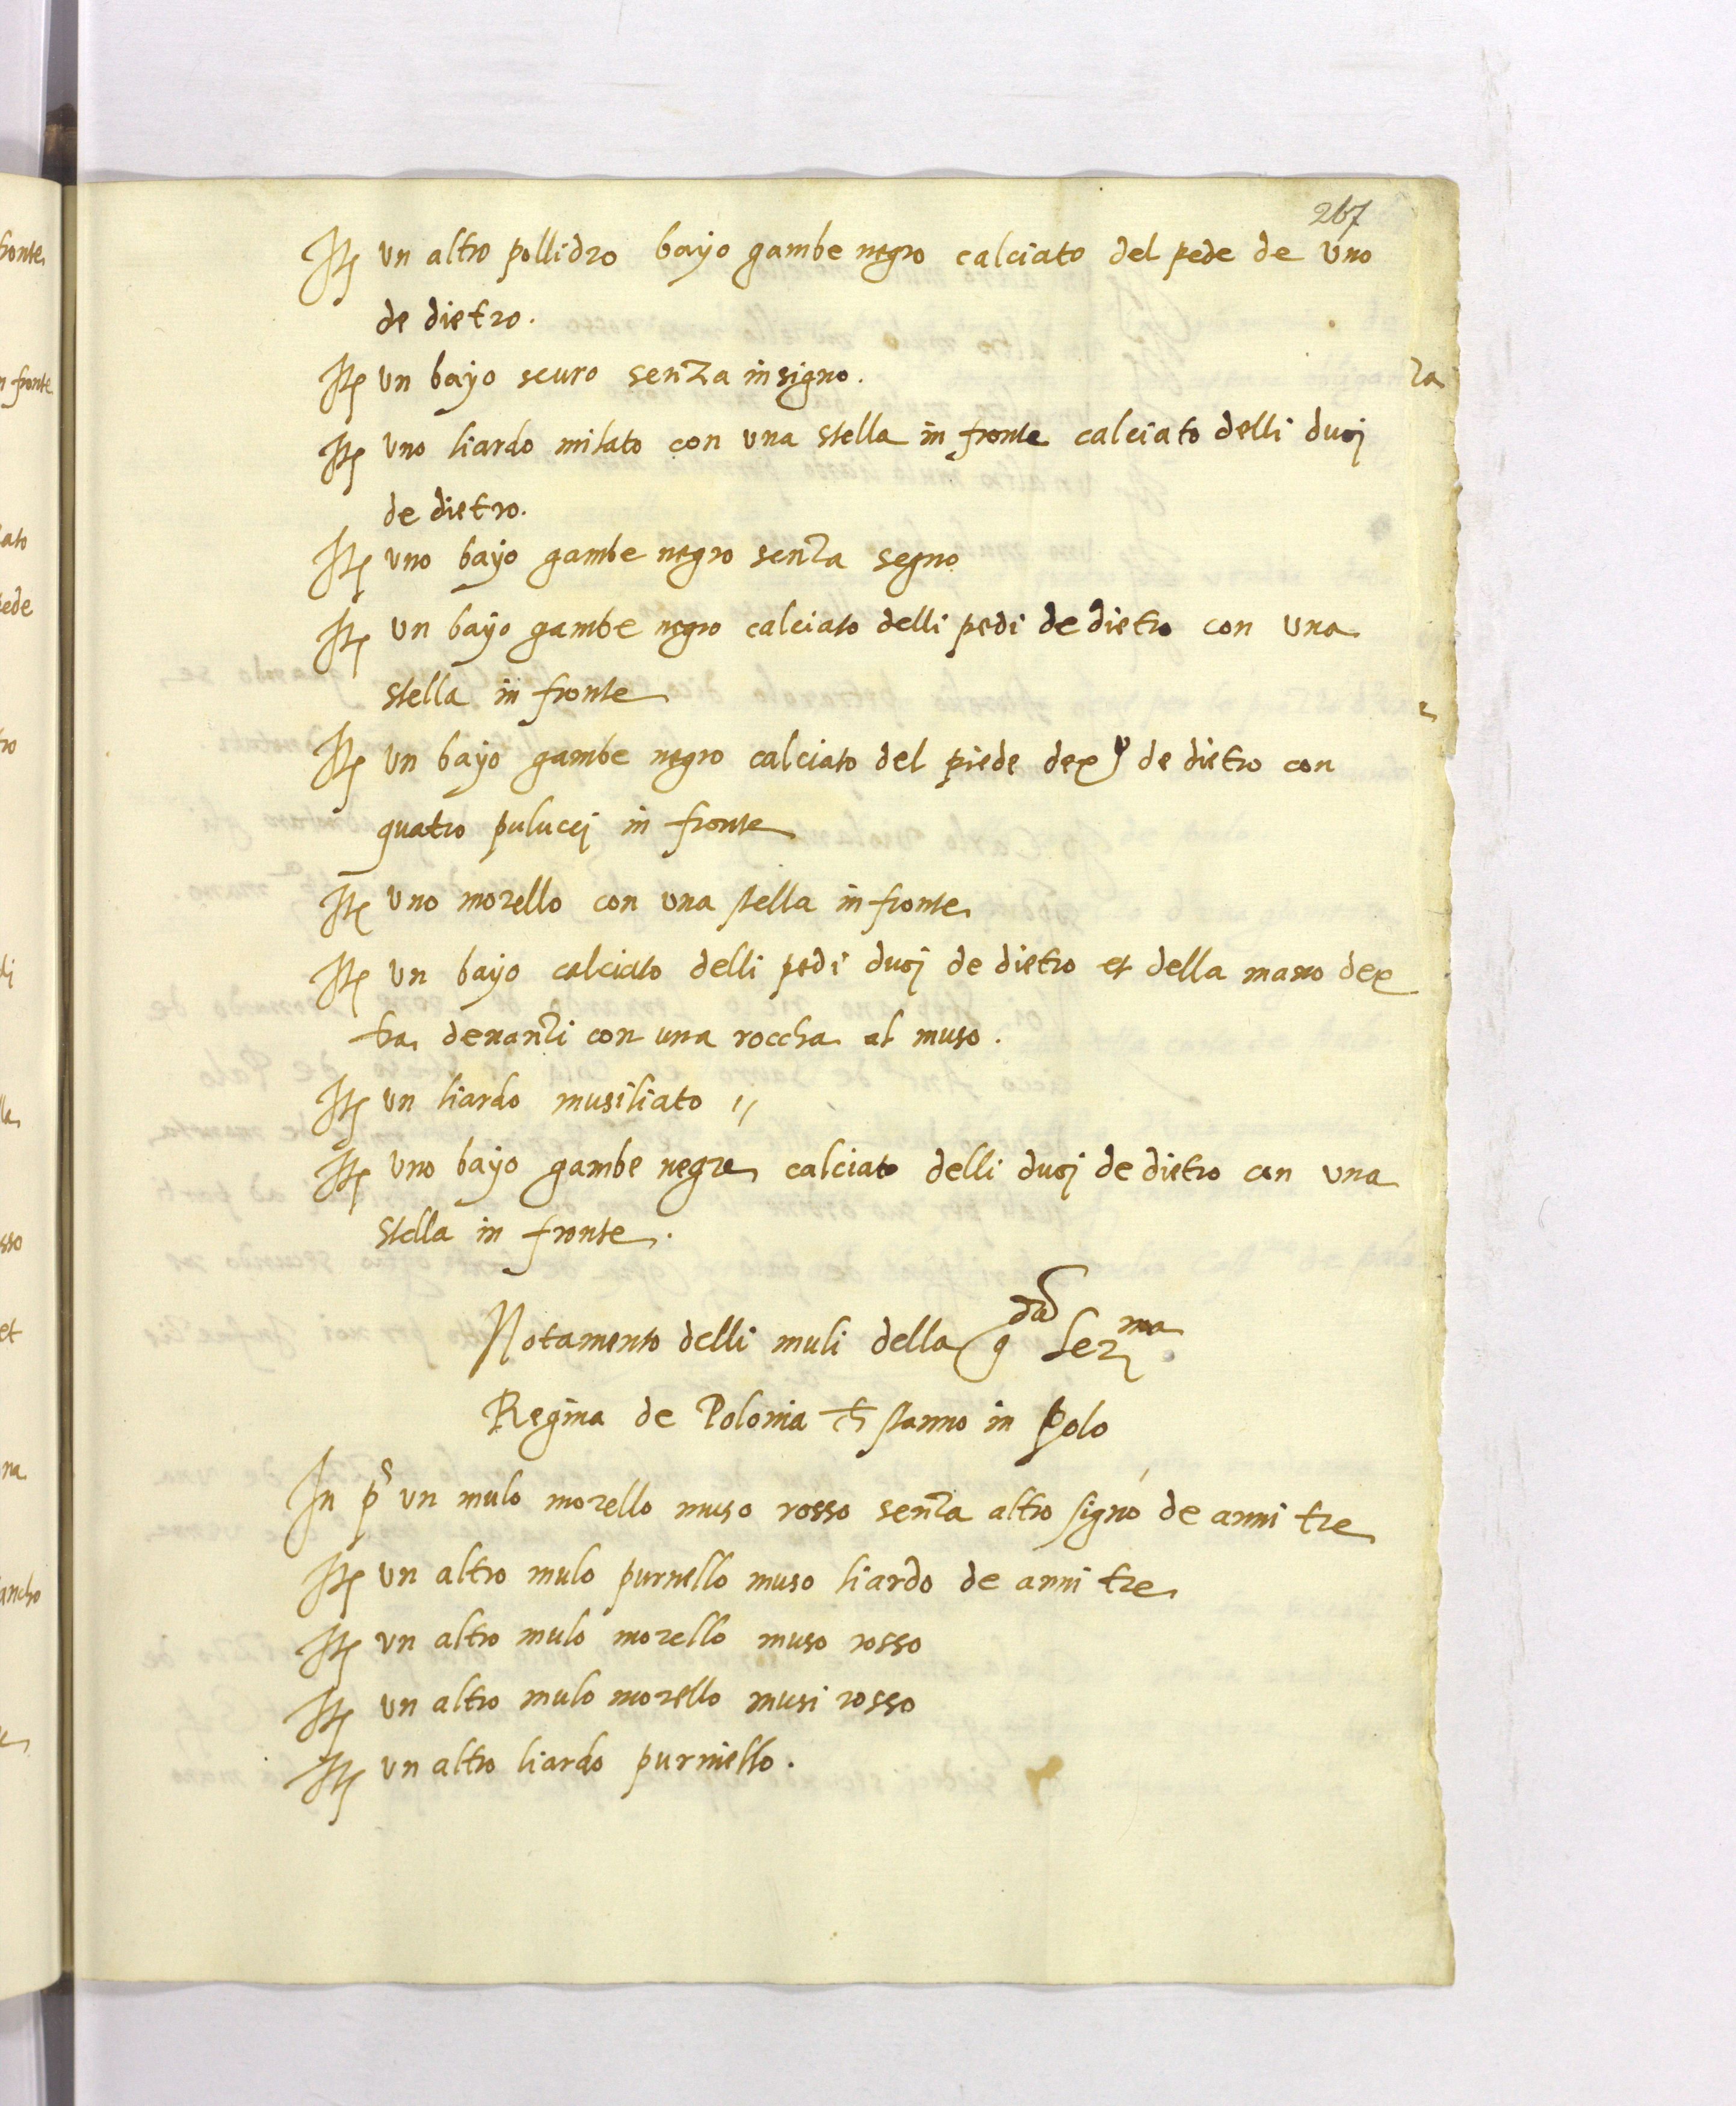 267
Itē un altro pollidro bayo gambe negro calciato del pede de uno
de dietro.
Itē un bayo scuro senza in signo.
Itē uno liardo milato con una stella in fronte calciato delli duoj
de dietro.
Itē uno bayo gambe negro senza segno
Itē un bayo gambe negro calciato delli pedi de dietro con una
stella in fronte
Itē un bayo gambe negro calciato del piede dext° de dietro con
quatro pulucej in fronte
Itē uno morello con una stella in fronte
Itē un bayo calciato delli pedi duoj de dietro et della mano dex
tra denanzi con una roccha al muso.
Itē un liardo musiliato //
Itē uno bayo gambe negre calciato delli duoj de dietro con una
stella in fronte.
Notamento delli muli della qdā Serma
Regina de Polonia ch stanno in Polo
In ps un mulo morello muso rosso senza altro signo de anni tre
Itē un altro mulo purnello muso liardo de anni tre
Itē un altro mulo morello muso rosso
Itē un altro mulo morello musi rosso
Itē un altro liardo purniello.